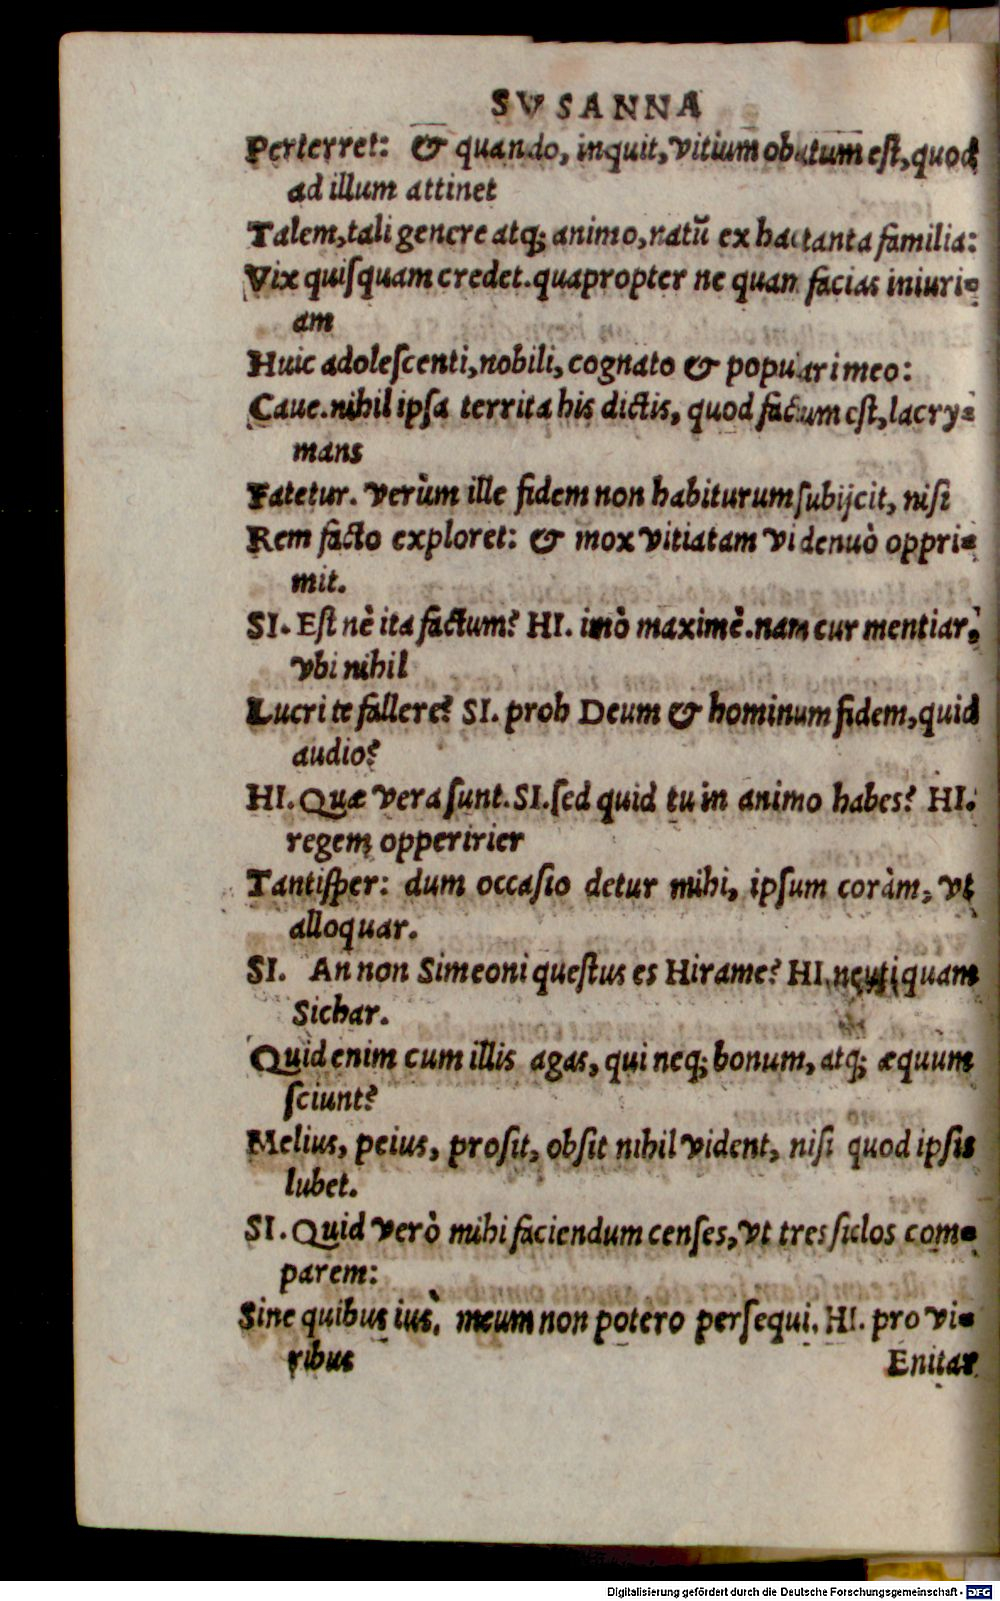 SVSANNA
Perterret: & quando, inquit, vitium oblatum est, quod
ad illum attinet
Talem, tali genere atq; animo, natũ ex hac tanta familia:
Vix quisquam credet. quapropter ne quam facias iniuri-
am
Huic adolescenti, nobili, cognato & populari meo:
Caue. nihil ipsa territa his dictis, quod factum est, lacry-
mans
Fatetur. verùm ille fidem non habiturum subijcit, nisi
Rem facto exploret: & mox vitiatam vi denuò oppri-
mit.
SI. Est nè ita factum? HI. imò maximè. nam cur mentiar,
vbi nihil
Lucri te fallere? SI. proh Deum & hominum fidem, quid
audio?
HI. Quæ vera sunt. SI. sed quid tu in animo habes? HI.
regem opperirier
Tantisper: dum occasio detur mihi, ipsum coràm, vt
alloquar.
SI. An non Simeoni questus es Hirame? HI. neutiquam
Sichar.
Quid enim cum illis agas, qui neq; bonum, atq; æquum
sciunt?
Melius, peius, prosit, obsit nihil vident, nisi quod ipsis
lubet.
SI. Quid verò mihi faciendum censes, vt tres siclos com-
parem:
Sine quibus ius, meum non potero persequi. HI. pro vi-
ribus
Enitar
Digitalisierung gefördert durch die Deutsche Forschungsgemeinschaft - DFG